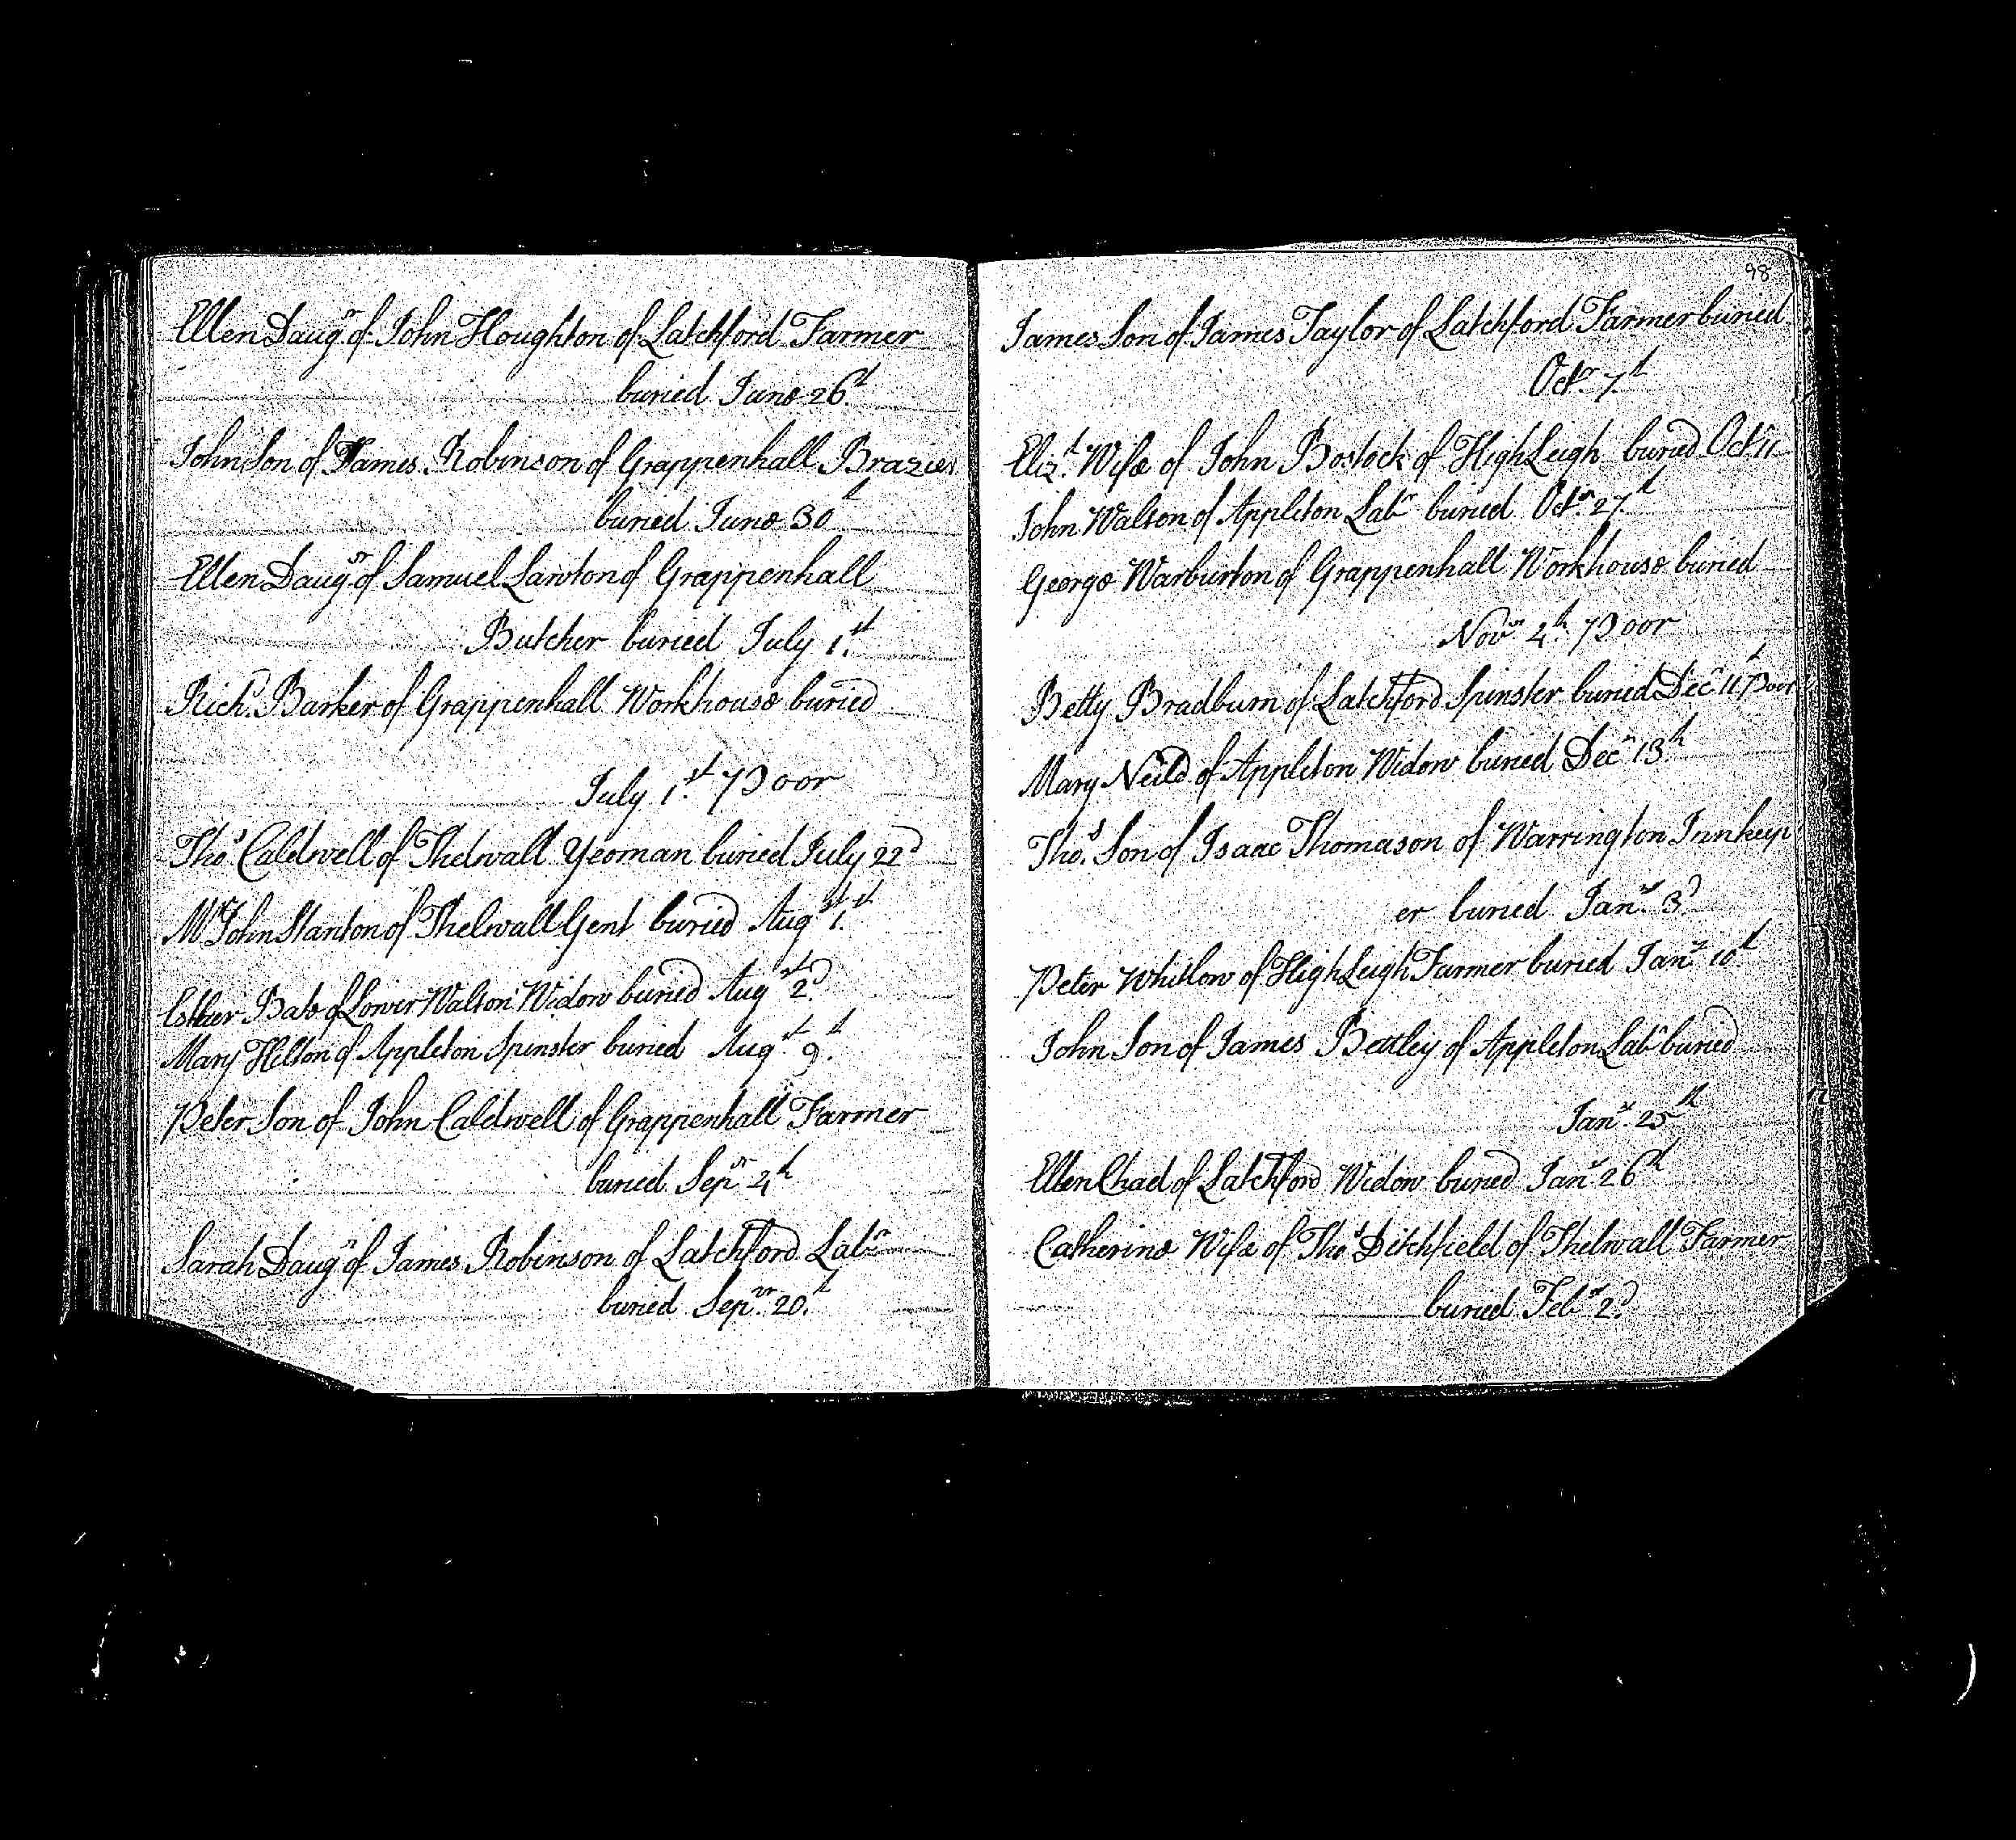 Ellen Daugr of John Houghton of Latchford Farmer
buried June 26th
John Son of James Robinson of Grappenhall Brazier
buried June 30th
Ellen Daugr of Samuel Lawton of Grappenhall
Butcher buried July 1st
Richd Barker of Grappenhall Workhouse buried
July 1st Poor
Thos Caldwell of Thelwall Yeoman buried July 22d
Mr John Stanton of Thelwall Gent buried Augst 1st
Esther Bate of Lower Walton Widow buried Augst 2d
Mary Hilton of Appleton Spinster buried Augst 9th
Peter Son of John Caldwell of Grappenhall Farmer
buried Sepr 4th
Sarah Daugr of James Robinson of Latchford Labr
buried Sepr 20th
98
James Son of James Taylor of Latchford Farmer buried
Octr 7th
Elizth Wife of John Bostock of High Leigh buried Octr 11
John Walton of Appleton Labr buried Octr 27th
George Warburton of Grappenhall Workhouse buried
Novr 4th Poor
Betty Bradburn of Latchford Spinster buried Decr 11th Poor
Mary Neild of Appleton Widow buried Decr 13th
Thos Son of Isaac Thomason of Warrington Innkeep
er buried Jany 3d
Peter Whitlow of High Leigh Farmer buried Jany 10th
John Son of James Bettley of Appleton Labr buried
Jany 25th
Ellen Chad of Latchford Widow buried Jany 26th
Catherine Wife of Thos Ditchfield of Thelwall Farmer
buried Feby 2d